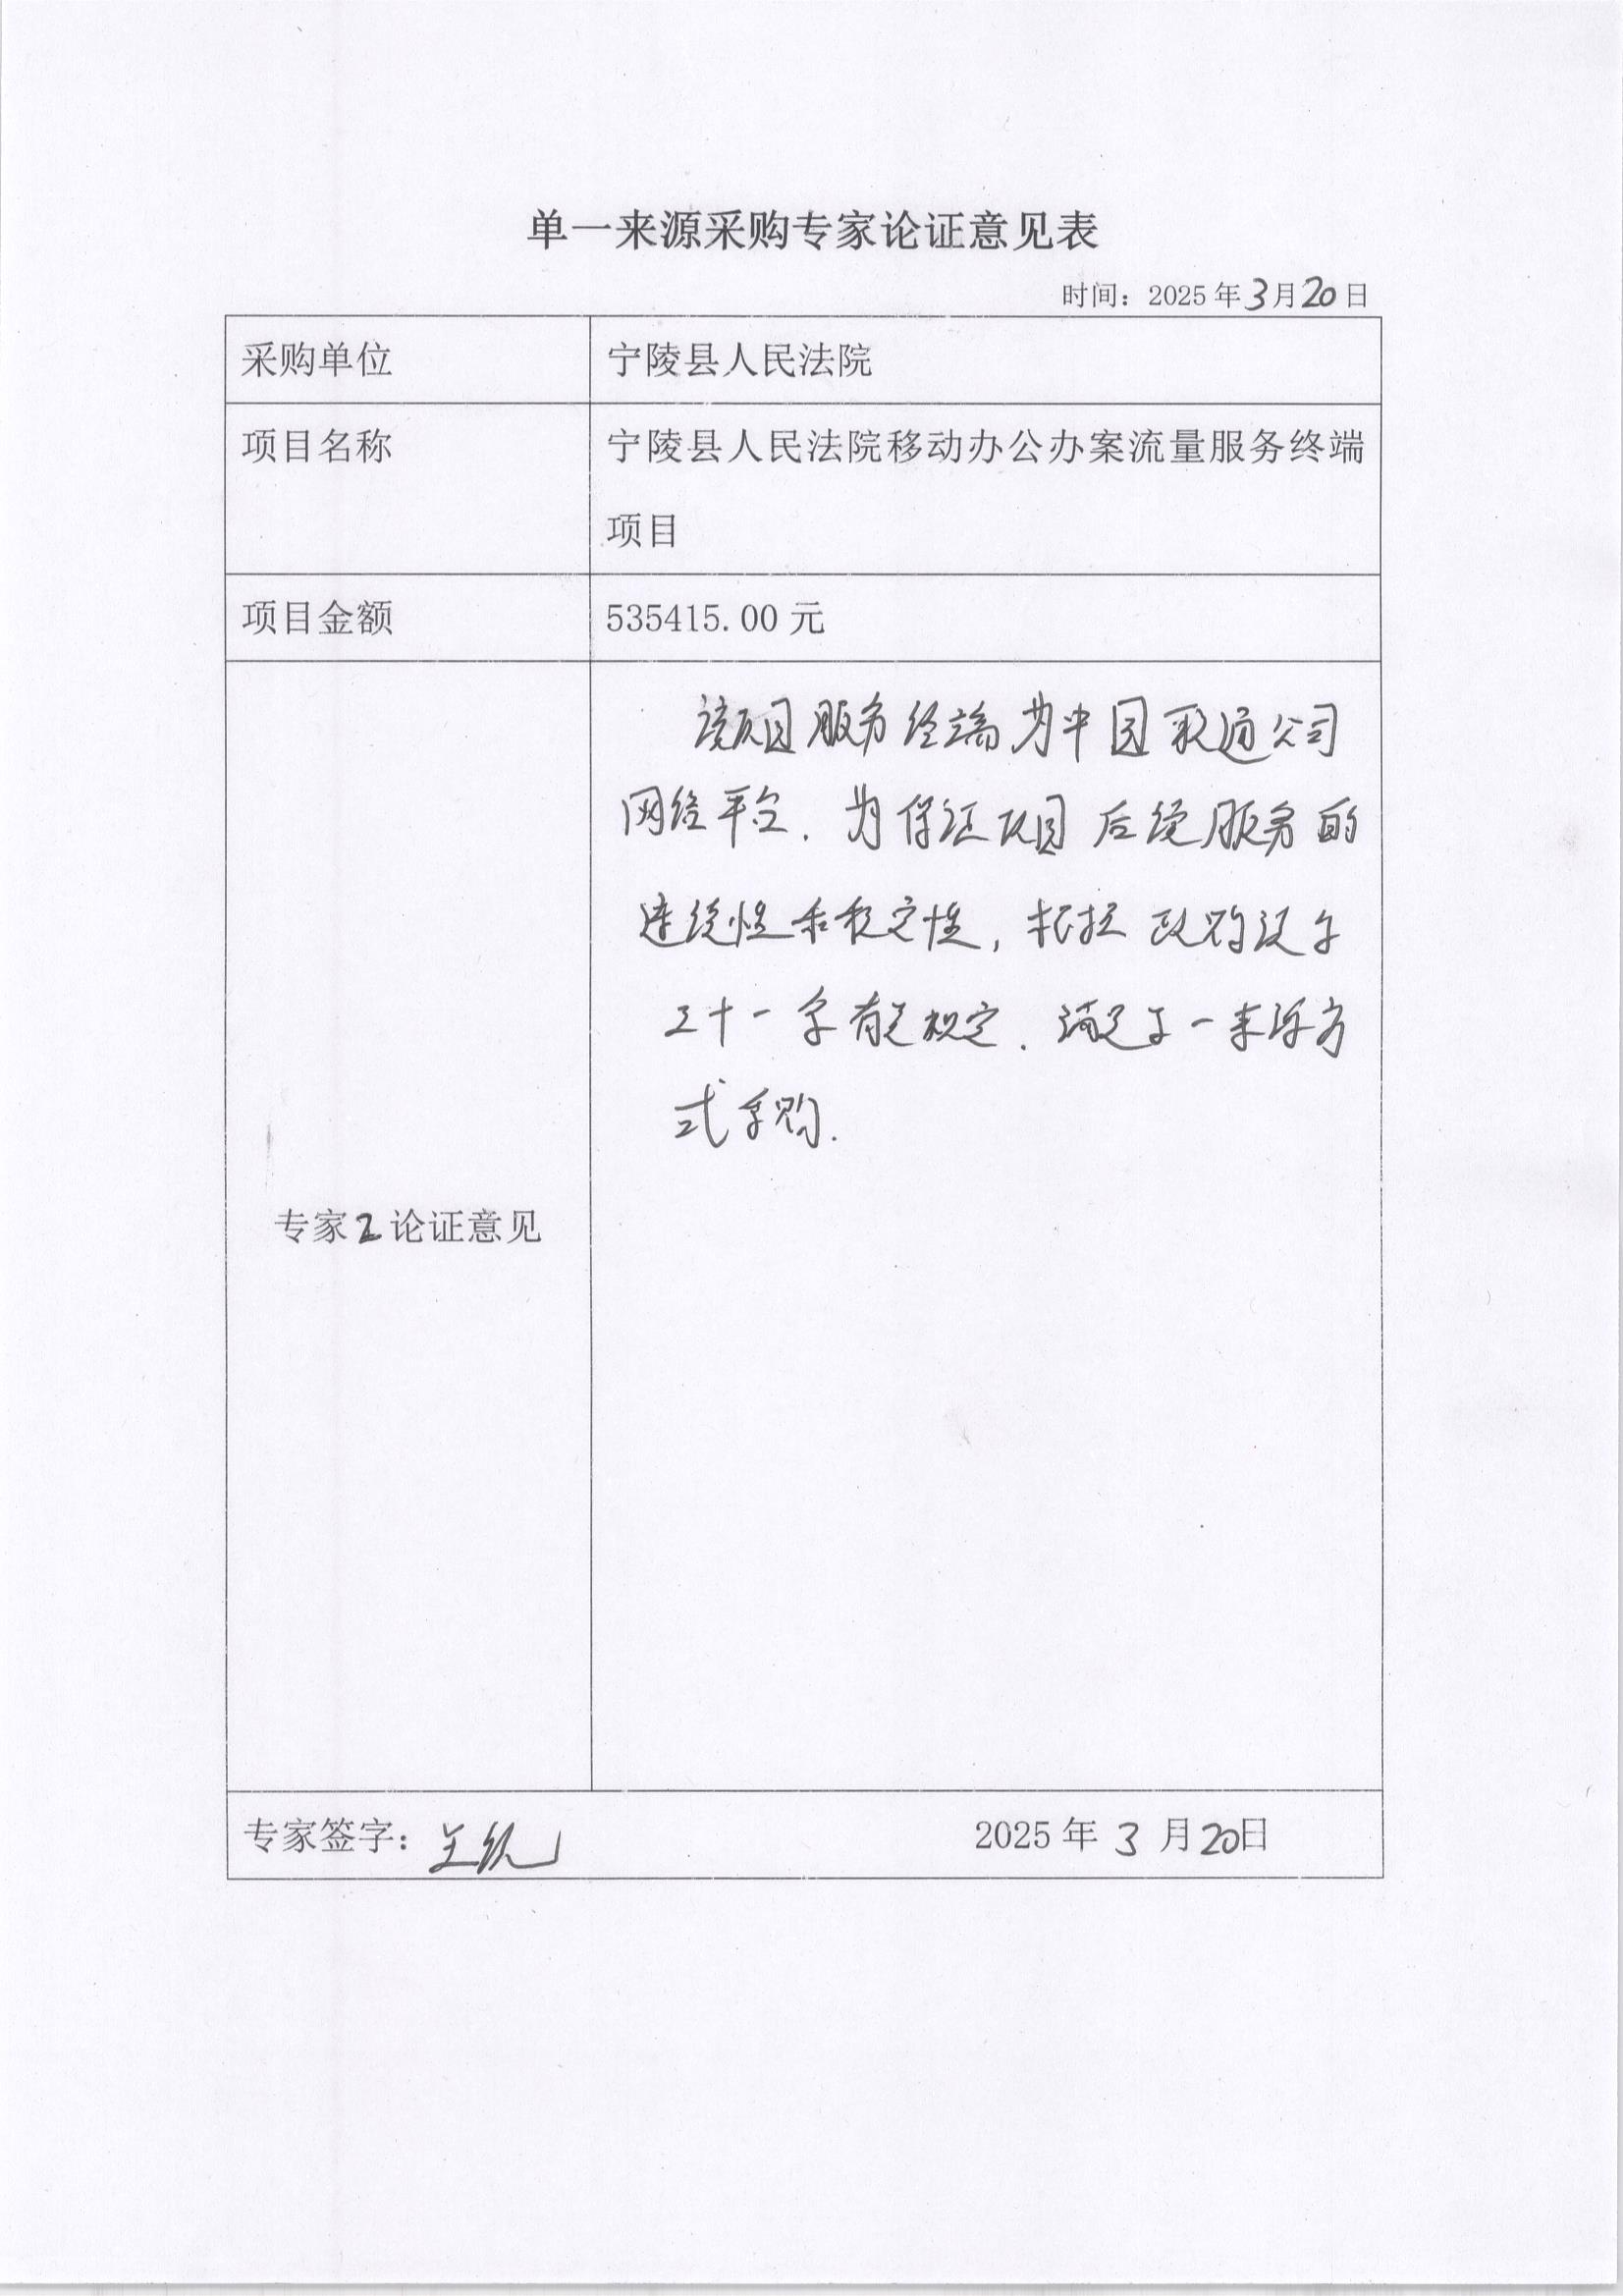 单一来源采购专家论证意见表
时间：2025年3月20日
采购单位
宁陵县人民法院
项目名称
宁陵县人民法院移动办公办案流量服务终端
项目
项目金额
535415.00元
该项目服务终端为中国联通公司
网络平台．为保证项目后续服务的
连续性和稳定性，根据政购法
三十一条有关规定．满足单一来源方
式采购．
专家2论证意见
专家签字：
2025年3月20日